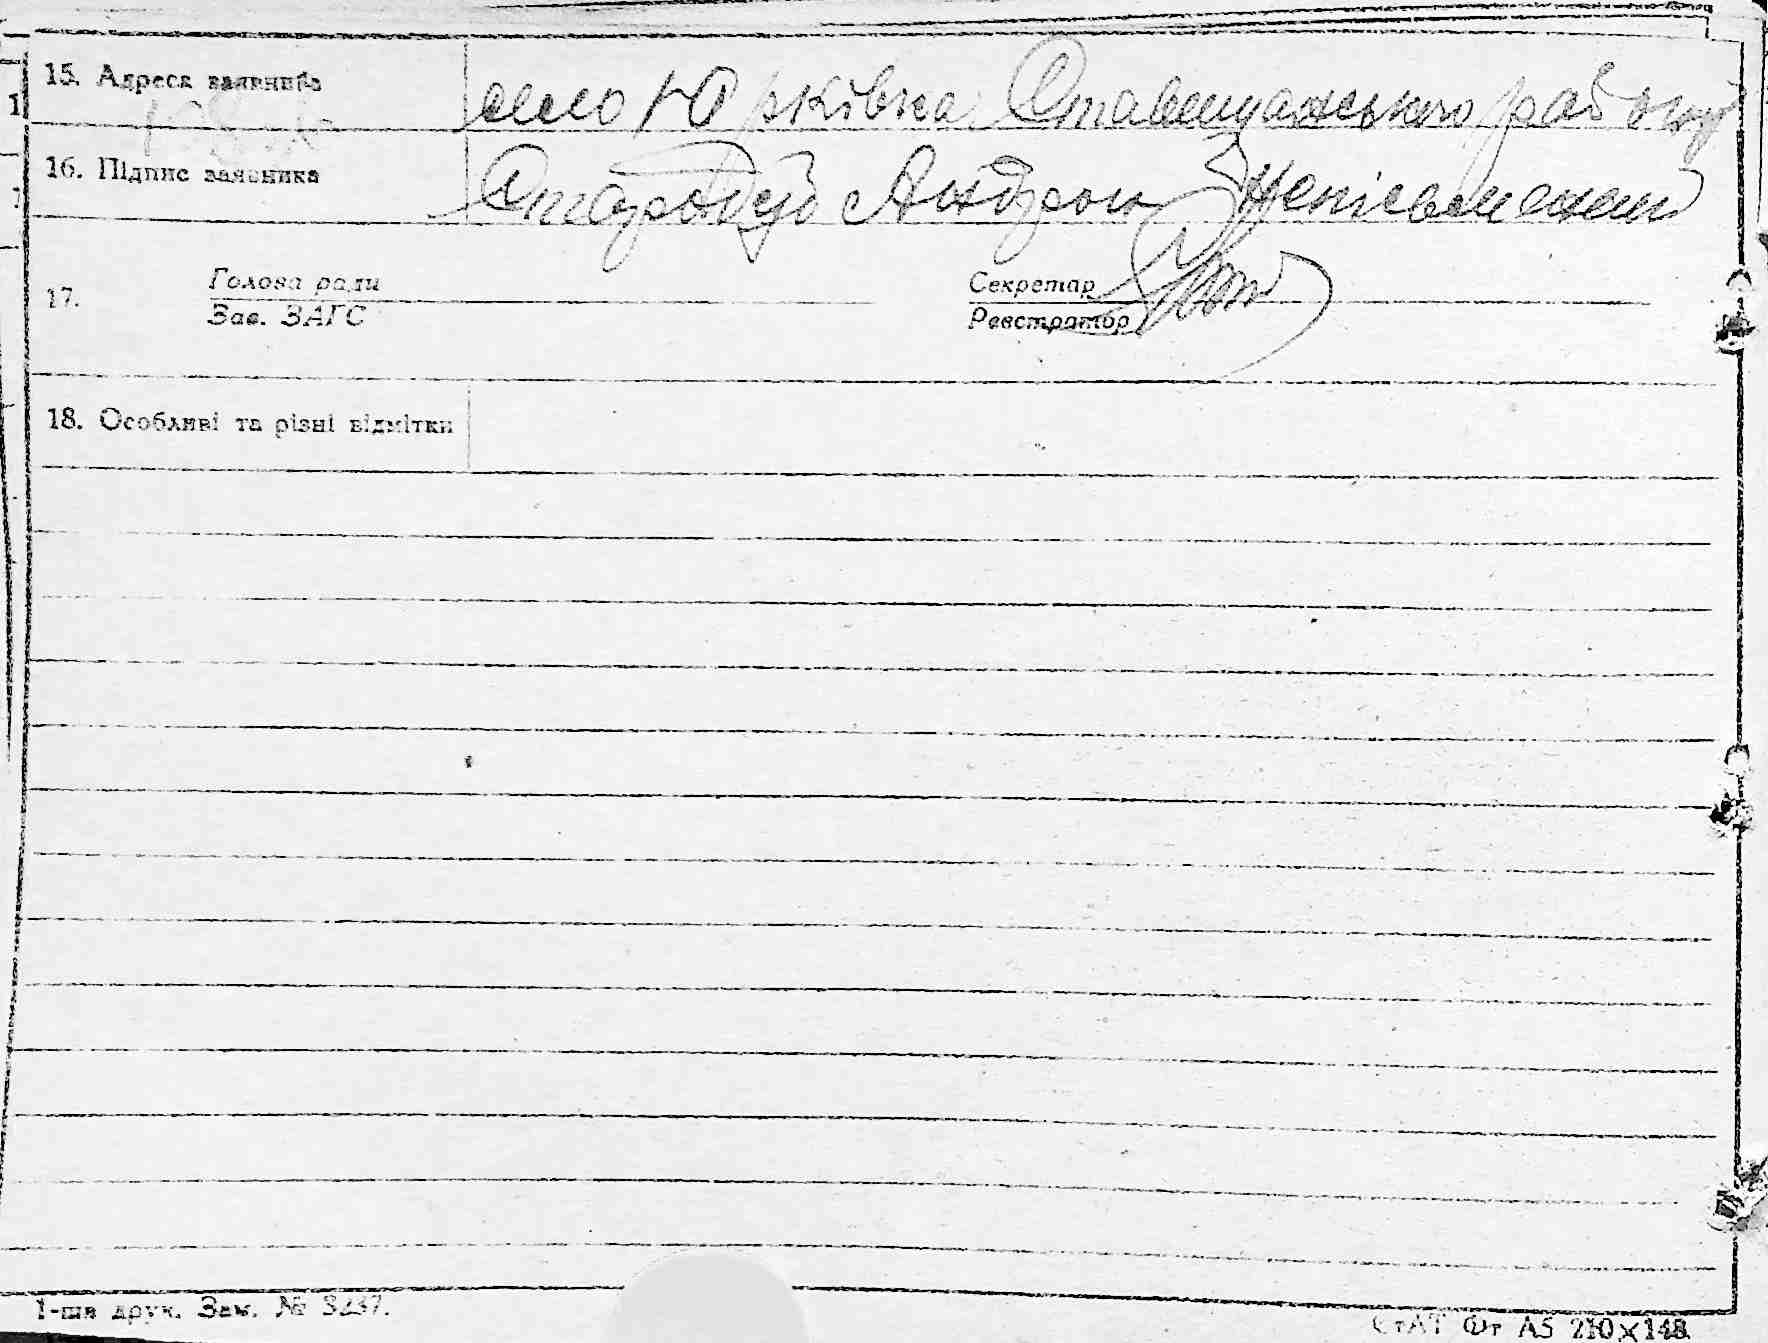 15. Адреса заявника село Юрківка Ставищанського району
16. Підпис заявника Стародуб Андрон неписьменний
17. Голова ради Секретар
Зав. ЗАГС Реєстратор
18. Особливі та різні відмітки
1-ша друк. Зам. № 3237.
СтАТ Фт А5 210×148